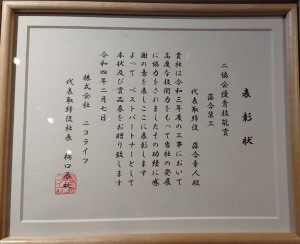 表彰状
二協会優秀技能賞
落合装工
代表取締役 落合幸人殿
貴社は令和三年度の工事において
高度な技術力をもって当社の発展
に協力をされましたその功績に感
謝の意を表しここに表彰します
よって ベストパートナーとして
本状及び賞品券をお贈り致します
令和四年二月七日
株式会社 ニコライフ
代表取締役社長